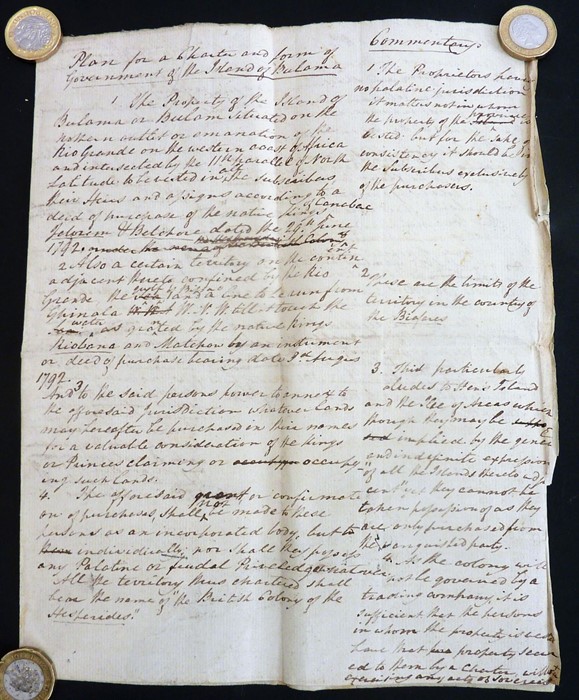 Plan for a Charter and form of
Government of the Island of Bulama
1 The Property of the Island of
Bulama or Bulam situated on the
northern outlet or emanation of the
Rio Grande on the western coast of Africa
and intersected by the 11th parallel of North
Latitude to be vested in the subscribers
their Heirs and assigns according to a
deed of purchase of the native Kings
Jalorem & Belchore dated the 29th June
1792
2 Also a certain territory on the contin
adjacent thereto confined by the Rio
Grande the and a line to be run from
Ghinala W. N. W. till it touch the
water as ceded by the native Kings
Niobana and Matchou by an instrument
or deed of purchase bearing date 3rd Augus
1792.
3 And to the said persons power to annex to
the aforesaid Jurisdiction whatever lands
may hereafter be purchased in their names
for a valuable consideration of the Kings
or Princes claiming or occupy
ing such lands.
4. The aforesaid grant or confirmati
on of purchases, shall not be made to these
persons as an incorporated body, but to
individually, nor shall they possess
any Palatine or feudal Priviledges
All the territory thus chartered shall
bear the name of "the British Colony of the
Hesperides"
Commentary
1 The Proprietors have
no palatine jurisdiction
it matters not in whom
the property of the is
vested but for the sake of
consistency it should be in
the Subscribers exclusively
of the purchasers.
2 These are the limits of the
territory in the country of
the Biafares
3. This particularly
aludes to Hens Island
and the Ilee of Arcas which
though they may be
implied by the gene
and indefinite expression
"of all the Islands thereto adja
cent" yet they cannot be
taken possession of as they
are only purchased from
the vanquished party.
4. As the colony will
not be governed by a
trading company, it is
sufficient that the persons
in whom the property is vested
have that property secur
ed to them by a Charter, without
exercising any acts of sovereig